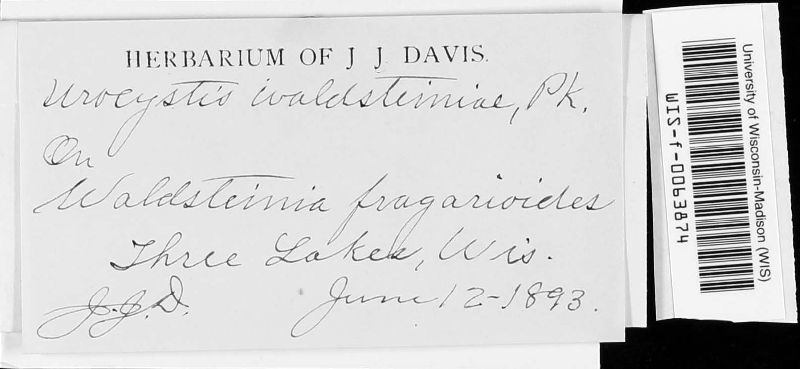 HERBARIUM OF J. J. DAVIS.
Urocystis waldsteiniae, Pk.
On
Waldsteinia fragarioides
Three Lakes, Wis.
J.J.D. June 12-1893.
University of Wisconsin-Madison (WIS)
WIS-f-0063874